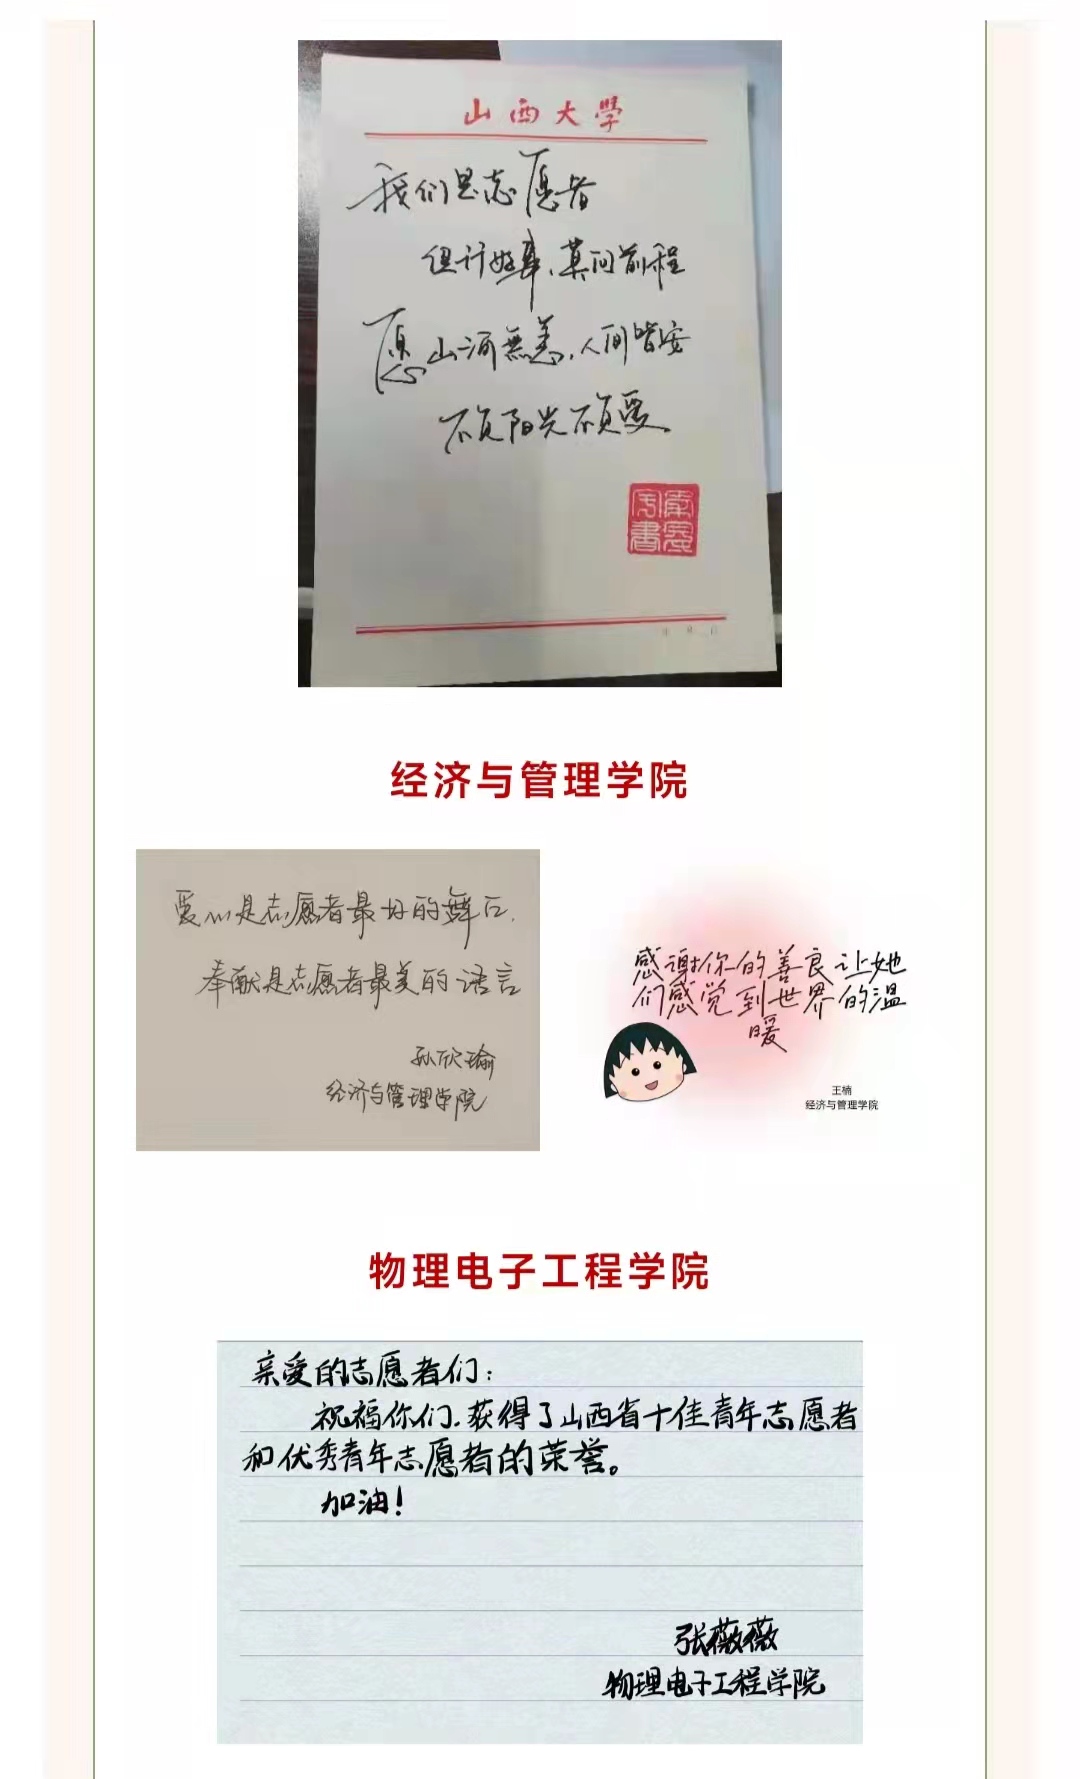 山西大學
我们是志愿者
但计好事、莫问前程
愿山河無恙,人间皆安
不负阳光不负爱
经济与管理学院
爱心是志愿者最好的舞台,
奉献是志愿者最美的语言
孙欣瑜
经济与管理学院
感谢你的善良让她
们感觉到世界的温
暖
王楠
经济与管理学院
物理电子工程学院
亲爱的志愿者们:
祝福你们,获得了山西省十佳青年志愿者
和优秀青年志愿者的荣誉。
加油!
张薇薇
物理电子工程学院